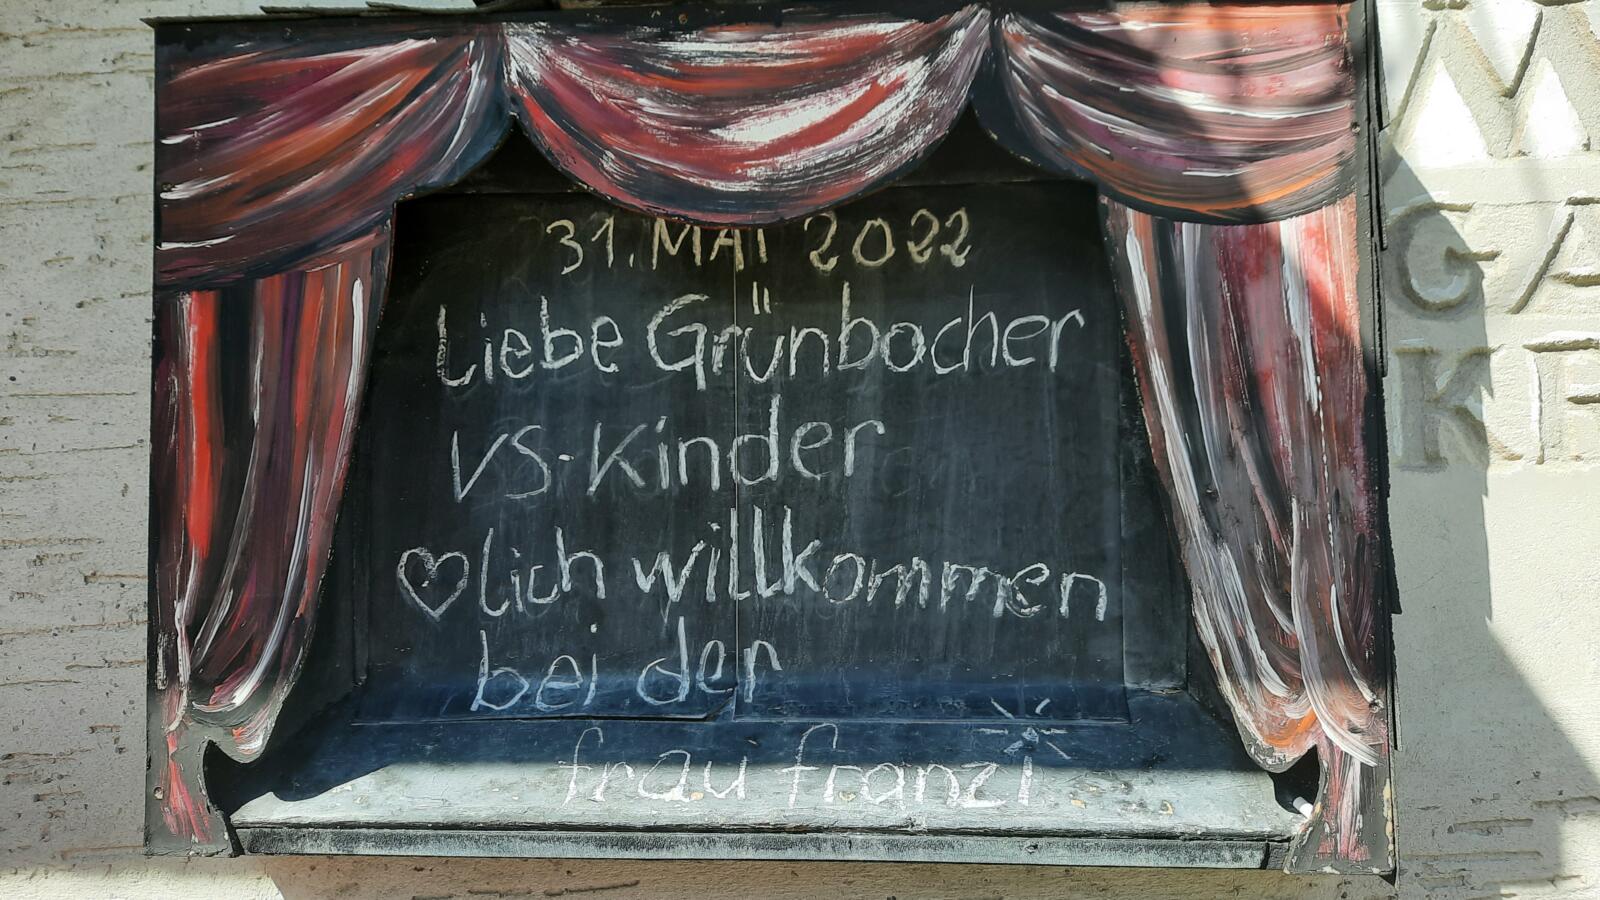 31. MAI 2022
Liebe Grünbacher
VS-Kinder
♡lich willkommen
bei der
frau franzi
M
GA
KE